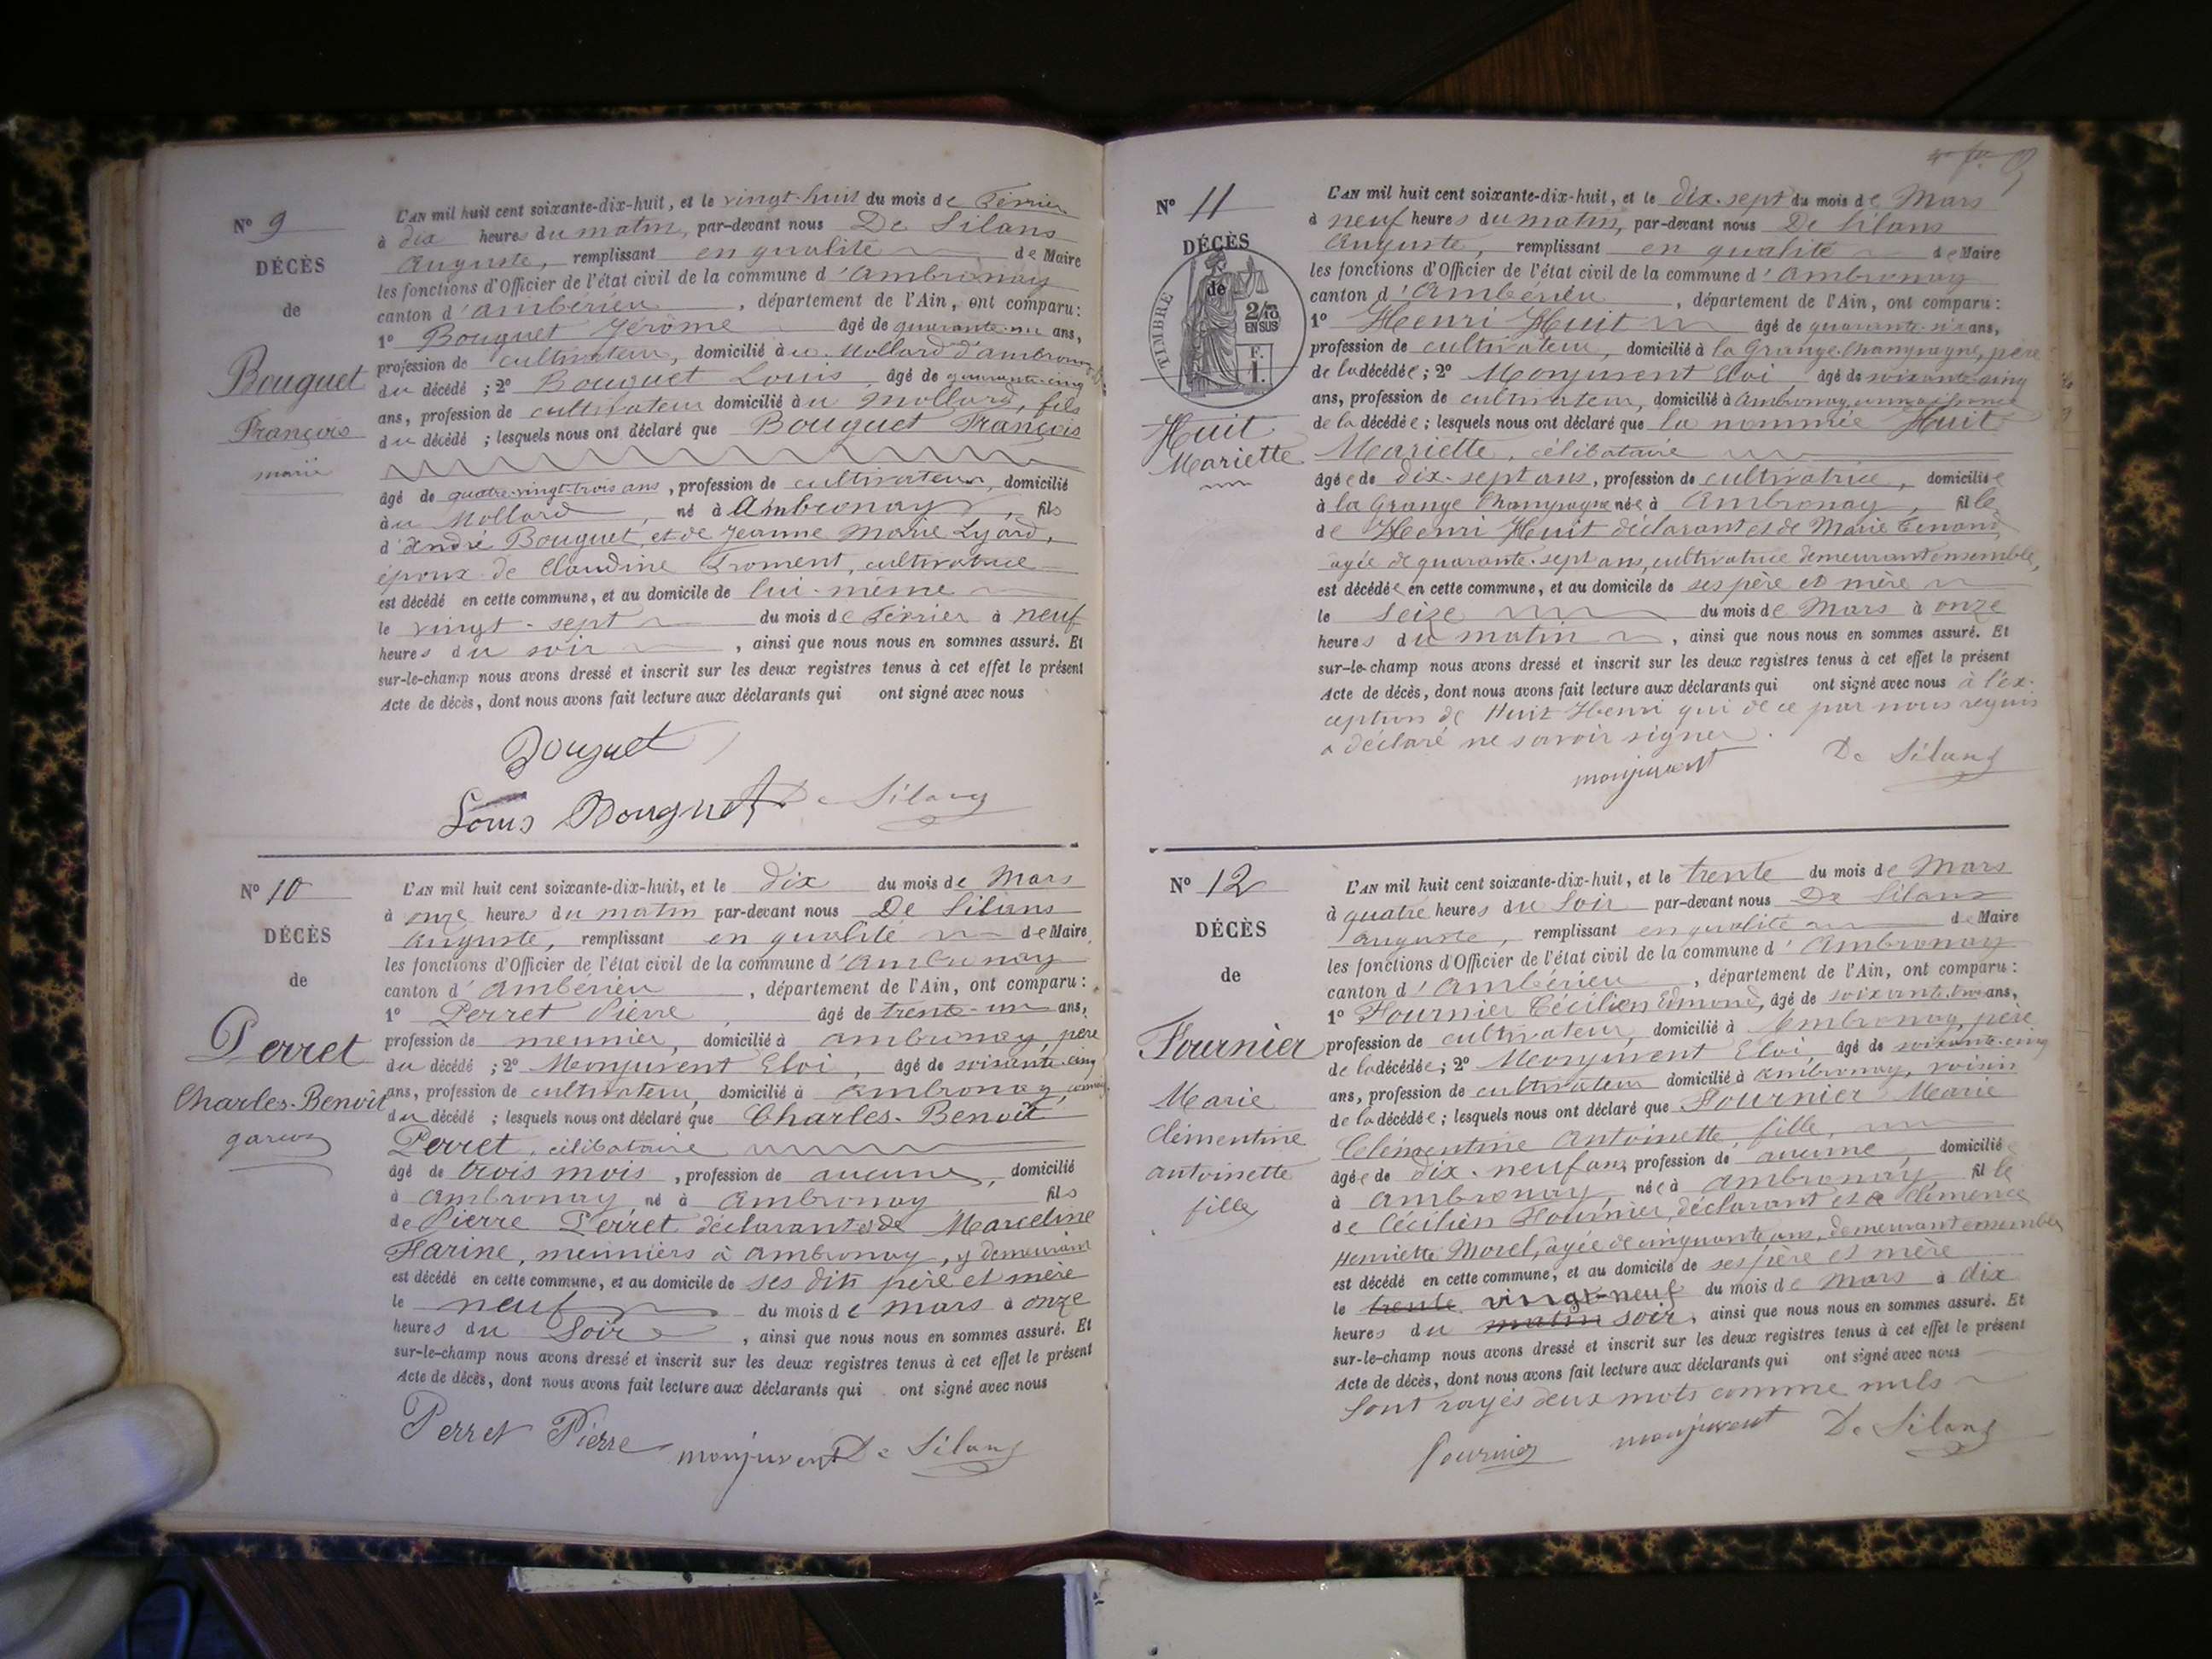 N° 9
DÉCÈS
de
Bouguet
François
marié
L'AN mil huit cent soixante-dix-huit, et le vingt-huit du mois de Février
à dix heures du matin, par-devant nous De Silans
Auguste, remplissant en qualité de Maire
les fonctions d'Officier de l'état civil de la commune d'Ambronay
canton d'Ambérieu, département de l'Ain, ont comparu:
1° Bouguet Jérôme âgé de quarante-un ans,
profession de cultivateur, domicilié au Mollard d'Ambronay, fils
du décédé ; 2° Bouguet Louis, âgé de quarante-cinq
ans, profession de cultivateur domicilié au Mollard, fils
du décédé ; lesquels nous ont déclaré que Bouguet François
âgé de quatre-vingt-trois ans, profession de cultivateur, domicilié
au Mollard, né à Ambronay, fils
d'André Bouguet, et de Jeanne Marie Lyard,
époux de Claudine Froment, cultivatrice
est décédé en cette commune, et au domicile de lui-même
le vingt-sept du mois de Février à neuf
heures du soir, ainsi que nous nous en sommes assuré. Et
sur-le-champ nous avons dressé et inscrit sur les deux registres tenus à cet effet le présent
Acte de décès, dont nous avons fait lecture aux déclarants qui ont signé avec nous
Bouguet
Louis Bouguet De Silans
N° 10
DÉCÈS
de
Perret
Charles-Benoît
garçon
L'AN mil huit cent soixante-dix-huit, et le dix du mois de Mars
à onze heures du matin par-devant nous De Silans
Auguste, remplissant en qualité de Maire
les fonctions d'Officier de l'état civil de la commune d'Ambronay
canton d'Ambérieu, département de l'Ain, ont comparu:
1° Perret Pierre âgé de trente-un ans,
profession de meunier, domicilié à Ambronay, père
du décédé ; 2° Monjuvent Eloi, âgé de soixante-cinq
ans, profession de cultivateur, domicilié à Ambronay,
du décédé ; lesquels nous ont déclaré que Charles-Benoît
Perret, célibataire
âgé de trois mois, profession de aucune, domicilié
à Ambronay né à Ambronay fils
de Pierre Perret déclarant et de Marceline
Farine, meuniers à Ambronay, y demeurant
est décédé en cette commune, et au domicile de ses dits père et mère
le neuf du mois de Mars à onze
heures du Soir, ainsi que nous nous en sommes assuré. Et
sur-le-champ nous avons dressé et inscrit sur les deux registres tenus à cet effet le présent
Acte de décès, dont nous avons fait lecture aux déclarants qui ont signé avec nous
Perret Pierre monjuvent De Silans
N° 11
DÉCÈS
de
TIMBRE
2/10
EN SUS
F.
1.
Huit
Mariette
L'AN mil huit cent soixante-dix-huit, et le dix-sept du mois de Mars
à neuf heures du matin, par-devant nous De Silans
Auguste, remplissant en qualité de Maire
les fonctions d'Officier de l'état civil de la commune d'Ambronay
canton d'Ambérieu, département de l'Ain, ont comparu:
1° Henri Huit âgé de quarante-six ans,
profession de cultivateur, domicilié à la Grange-Champagne, père
de la décédée ; 2° Monjuvent Eloi, âgé de soixante-cinq
ans, profession de cultivateur, domicilié à Ambronay,
de la décédée ; lesquels nous ont déclaré que la nommée Huit
Mariette, célibataire
âgée de dix-sept ans, profession de cultivatrice, domiciliée
à la Grange Champagne née à Ambronay, fille
de Henri Huit déclarant et de Marie Tenand,
agée de quarante-sept ans, cultivatrice demeurant ensemble,
est décédée en cette commune, et au domicile de ses père et mère
le Seize du mois de Mars à onze
heures du matin, ainsi que nous nous en sommes assuré. Et
sur-le-champ nous avons dressé et inscrit sur les deux registres tenus à cet effet le présent
Acte de décès, dont nous avons fait lecture aux déclarants qui ont signé avec nous à l'ex-
ception de Huit Henri qui de ce par nous requis
a déclaré ne savoir signer.
monjuvent De Silans
N° 12
DÉCÈS
de
Fournier
Marie
Clémentine
Antoinette
fille
L'AN mil huit cent soixante-dix-huit, et le trente du mois de Mars
à quatre heures du Soir par-devant nous De Silans
Auguste, remplissant en qualité de Maire
les fonctions d'Officier de l'état civil de la commune d'Ambronay
canton d'Ambérieu, département de l'Ain, ont comparu:
1° Fournier Cécilien Edmond, âgé de ans,
profession de cultivateur, domicilié à Ambronay, père
de la décédée ; 2° Monjuvent Eloi, âgé de soixante-cinq
ans, profession de cultivateur domicilié à Ambronay, voisin
de la décédée ; lesquels nous ont déclaré que Fournier Marie
Clémentine Antoinette, fille,
âgée de dix-neuf ans, profession de aucune, domiciliée
à Ambronay, née à Ambronay fille
de Cécilien Fournier, déclarant et de Clémence
Henriette Morel, agée de cinquante ans, demeurant ensemble
est décédé en cette commune, et au domicile de ses père et mère
le trente vingt-neuf du mois de Mars à dix
heures du matin soir, ainsi que nous nous en sommes assuré. Et
sur-le-champ nous avons dressé et inscrit sur les deux registres tenus à cet effet le présent
Acte de décès, dont nous avons fait lecture aux déclarants qui ont signé avec nous
Sont rayés deux mots comme nuls
Fournier monjuvent De Silans